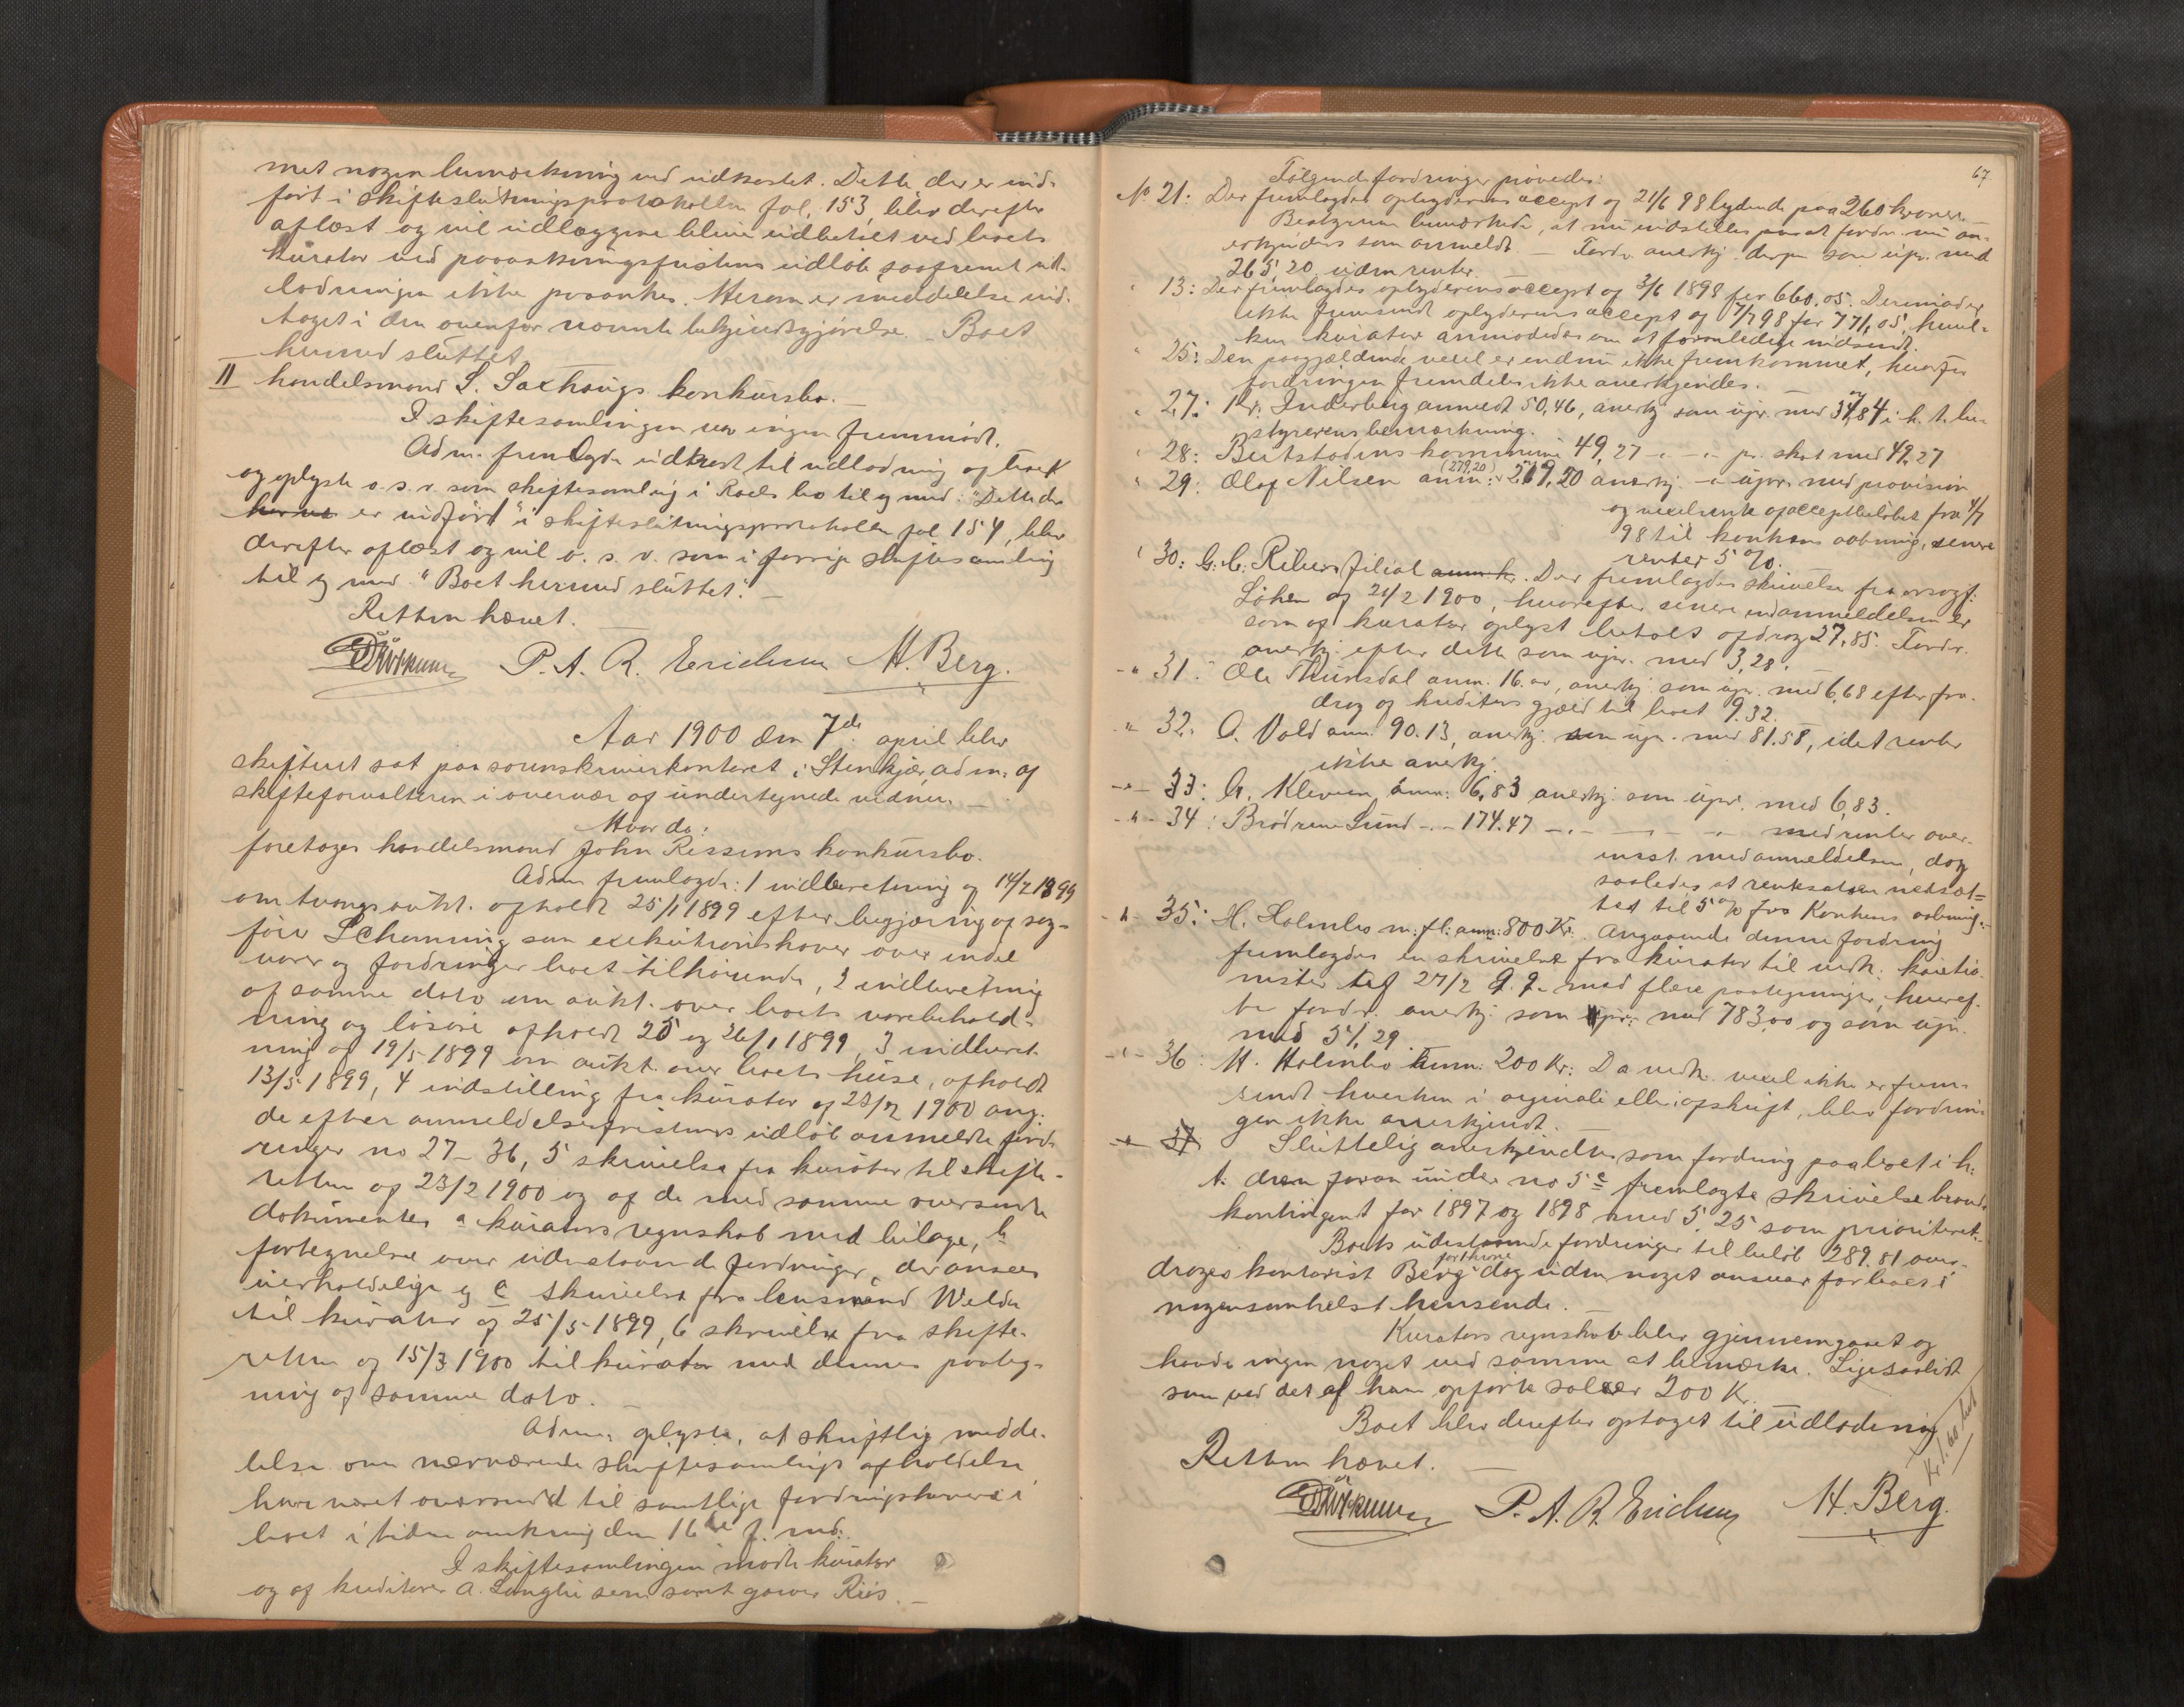 met nogen bemærkning ved udkastet. Dette, der er ind-
ført i skifteslutningsprotokollen fol. 153, blev derefter
aflæst og vil udlæggene blive udbetalt ved boets
kurator ved paaankningsfristens udløb saafremt ud-
lodningen ikke paaankes. Herom er meddelelse ind-
taget i den ovenfor nævnte bekjendtgjørelse. Boet
hermed sluttet.
II handelsmand S. Saxhaugs konkursbo. –
I skiftesamlingen var ingen fremmødt.
Adm. fremlagde udkast til udlodning af boet
og oplyste o. s. v. som skiftesamling i Roels bo til og med: "Dette der
er indført" i skifteslutningsprotokollen fol 154, blev
derefter aflæst og vil o. s. v. som i forrige skiftesamling
til og med "Boet hermed sluttet." –
Retten hævet. –
P. A. R. Erichsen M. Berg.
Aar 1900 den 7de april blev
skifteret sat paa sorenskriverkontoret i Stenkjær, adm. af
skifteforvalteren i overvær af undertegnede vidner. –
Hvor da:
foretages handelsmand John Ressems konkursbo.
Adm. fremlagde: 1 indberetning af 14/2 1899
om tvangsaukt. afholdt 25/1 1899 efter begjæring af sag-
fører Schanning som exekutionshaver over endel
varer og fordringer boet tilhørende, 2 indberetning
af samme dato om aukt. over boets varebehold-
ning og løsøre afholdt 25 og 26/1 1899, 3 indberet-
ning af 19/5 1899 om aukt. over boets huse, afholdt
13/5 1899, 4 indstilling fra kurator af 23/2 1900 ang.
de efter anmeldelsesfristens udløb anmeldte ford-
ringer no 27–36, 5 skrivelse fra kurator til skifte-
retten af 23/2 1900 og af de med samme oversendte
dokumenter a kurators regnskab med bilage, b
fortegnelse over udestaaende fordringer, der ansees
uerholdelige og c skrivelse fra lensmand Welde
til kurator af 25/5 1899, 6 skrivelse fra skifte-
retten af 15/3 1900 til kurator med dennes paateg-
ning af samme dato. –
Adm. oplyste, at skriftlig medde-
lelse om nærværende skiftesamlings afholdelse
har været oversendt til samtlige fordringshavere i
boet i tiden omkring den 16de f. md.
I skiftesamlingen mødte kurator
og af kreditorer A. Langli sen. samt garver Riis. –
67
Følgende fordringer prøvedes:
No 21: Der fremlagdes opbyderens accept af 21/6 98 lydende paa 260 kroner. –
Bestyreren bemærkede, at nu indstilles paa at fordr. nu an-
erkjendes som anmeldt. – Fordr. anerkj. derpaa som upr. med
265,20 uden renter. –
" 13: Der fremlagdes opbyderens accept af 3/6 1898 for 660.05. Derimod er
ikke fremsendt opbyderens accept af 7/7 98 for 771,05, hvil-
ken kurator anmodedes om at foranledige indsendt.
" 25: Den paagjældende vexel er endnu ikke fremkommet, hvorfor
fordringen fremdeles ikke anerkjendes. –
" 27: Kr. Inderberg anmeldt 50,46, anerkj. som upr. med 37,84 i h. t. be-
styrerens bemærkning.
" 28: Beitstadens kommune 49,27 – " – " – pr. skat med 49,27
" 29: Olaf Nilsen anm: (279,20) 219,20 anerkj. – " upr. med provision
og vexelrente af acceptbeløbet fra 4/7
98 til konkurs aabning, senere
renter 5 %.
" 30: G. C. Riibers filial anm. kr. Der fremlagdes skrivelse fra orsagf.
Løken af 21/2 1900, hvorefter senere end anmeldelsen er
som af kurator oplyst betalt afdrag 27,85. Fordr.
anerkj. efter dette som upr. med 3,28.
– " 31: Ole Thunsdal anm. 16. ", anerkj. som upr. med 6,68 efter fra-
drag af kreditors gjæld til boet 9.32.
– " 32: O. Vold anm. 90.13, anerkj. som upr. med 81.58, idet renter
ikke anerkj.
– " – 33: G. Kleven anm: 6,83 anerkj. som upr. med 6,83.
– " – 34: Brødrene Lund – " – 174.47 – " – – " – – " – med renter over-
ensst. med anmeldelsen, dog
saaledes at rentesatsen nedsæt-
tes til 5 % fra Konkurs aabning. –
– " – 35: H. Holmbo m. fl: anm: 800 Kr: Angaaende denne fordring
fremlagdes en skrivelse fra kurator til vedk. kautio-
nister af 27/2 d. å. med flere paategninger, hvoref-
te fordr. anerkj. som upr. med 783,00 og som upr.
med 51,29.
– " – 36: H. Holmbo anm: 200 Kr: Da vedk. vexel ikke er frem-
sendt hverken i orginal eller afskrift, blev fordrin-
gen ikke anerkjendt.
– " – 37
Sluttelig anerkjendtes som fordring paa boet i h.
t. den foran under no 5 c fremlagte skrivelse brand-
kontingent for 1897 og 1898 med 5.25 som prioriteret.
Boets udestaaende fordringer til beløb 289.81 over-
drages kontorist Berg dog uden noget ansvar for boet i
nogensomhelst henseende. –
Kurators regnskab blev gjennemgaaet og
havde ingen noget ved samme at bemærke. Ligesaalidt
som ved det af ham opførte salær 200 K.
Boet blev derefter optaget til udlodning
Retten hævet. –
P. A. R. Erichsen M. Berg.